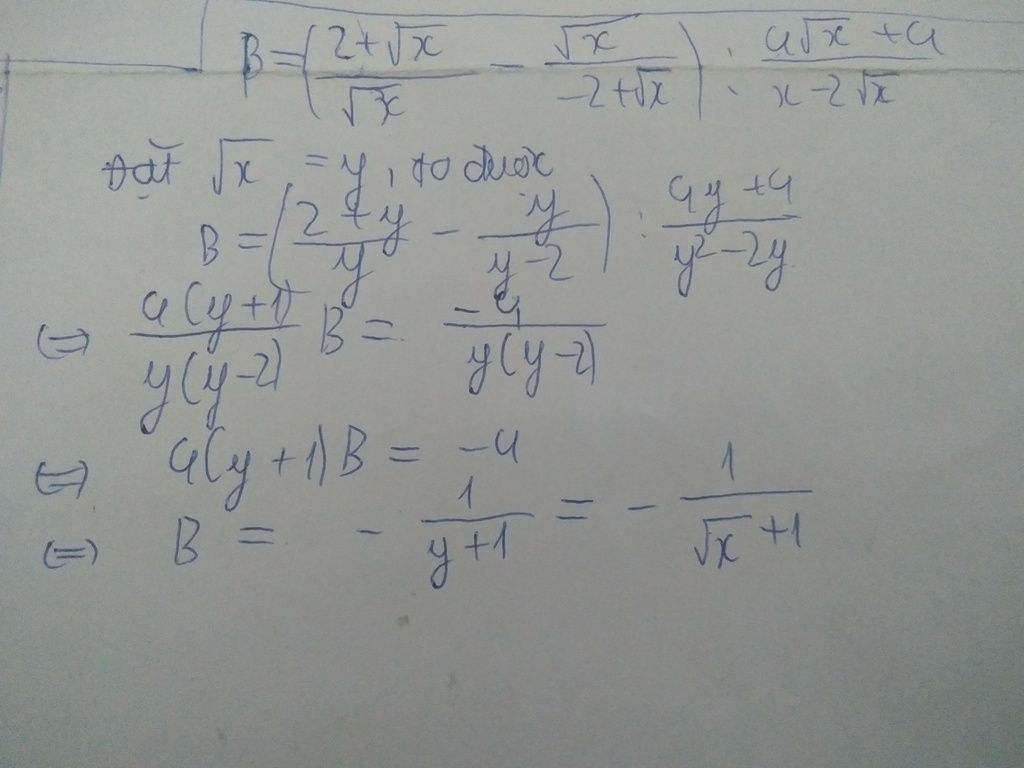 B = ( (2+√x)/√x − √x/(-2+√x) ) : (4√x + 4)/(x-2√x)
Đặt √x = y, ta được
B = ( (2+y)/y − y/(y-2) ) : (4y+4)/(y²-2y)
(=) 4(y+1)/(y(y-2)) B = -4/(y(y-2))
(=) 4(y+1)B = -4
(=) B = - 1/(y+1) = - 1/(√x+1)